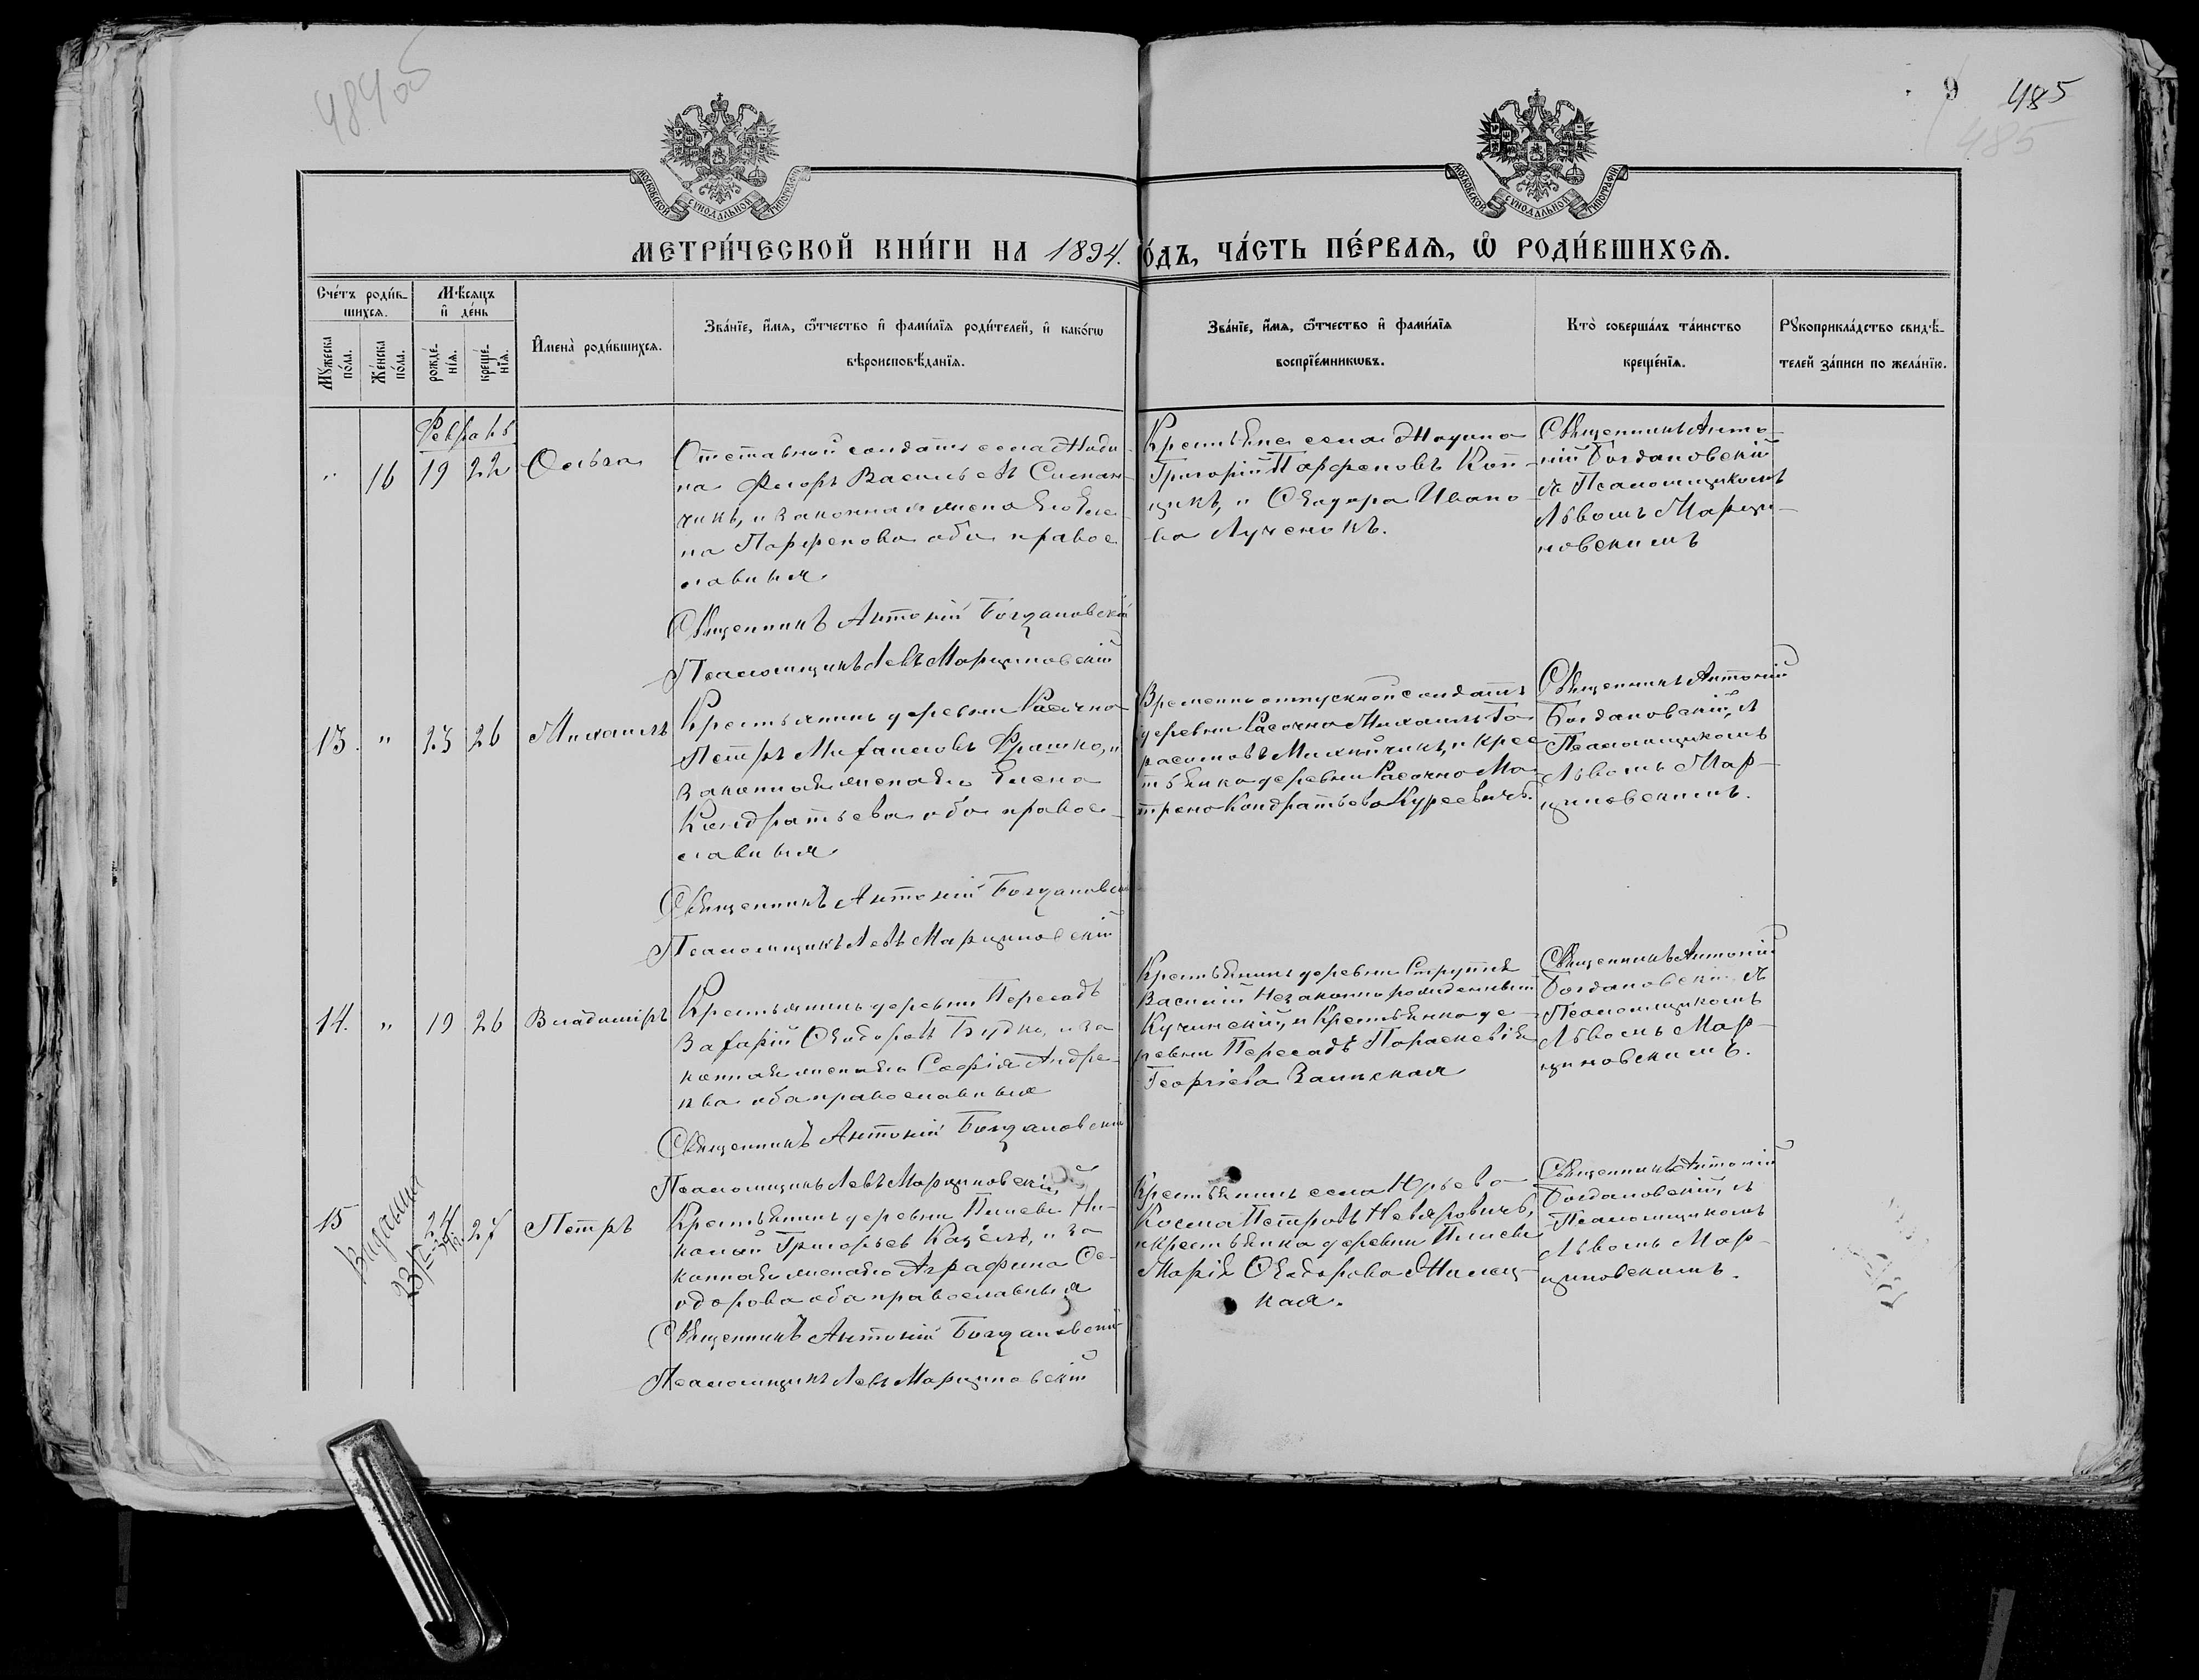 484 об
9 485
485
МОСКОВСКОЙ СѴНОДАЛЬНОЙ ТИПОГРАФІИ
МОСКОВСКОЙ СѴНОДАЛЬНОЙ ТИПОГРАФІИ
МЕТРИ́ЧЕСКОЙ КНИ́ГИ НА 1894. ГО́ДЪ, ЧА́СТЬ ПЕ́РВАѦ, Ѡ҆ РОДИ́ВШИХСѦ.
Сче́тъ роди́в-
шихсѧ.
Мꙋ́жеска по́ла.
Же́нска по́ла.
Мѣ́сѧцъ
и҆ де́нь
рожде́-
нїѧ.
креще́-
нїѧ.
И҆мена̀ роди́вшихсѧ.
Зва́нїе, и҆́мѧ, ѻ҆́тчество и҆ фами́лїѧ роди́телей, и҆ како́гѡ
вѣроисповѣ́данїѧ.
Зва́нїе, и҆́мѧ, ѻ҆́тчество и҆ фами́лїѧ
воспрїе́мникѡвъ.
Кто̀ соверша́лъ та́инство
креще́нїѧ.
Рꙋкоприкла́дство свидѣ́-
телей за́писи по жела́нїю.
Февраль
" 16 19 22 Ольга
Отставный солдатъ села
на Ѳеодоръ Васильевъ
чикъ, и законная жена его Еле-
на Парѳенова оба правос
лавныя.
Священникъ Антоній Богдановскій
Псаломщикъ Левъ Марциновскій
Григорій Парѳеновъ
цикъ, и Ѳеодора Ивано-
ва Лученокъ.
Священникъ Анто-
ній Богдановскій
съ Псаломщикомъ
Львомъ Марци-
новскимъ
13. " 23 26 Михаилъ
Крестьянинъ деревни Расично
Петръ Михаиловъ Фрашко, и
законная жена его Елена
Кондратьева оба правос-
лавныя
Священникъ Антоній Богдановскій
Псаломщикъ Левъ Марциновскій
Временно отпускной солдатъ
деревни Расочно Михаилъ Га-
расимовъ и крес
тьянка деревни Расочно Ма-
трена Кондратьева Курсевичъ.
Священникъ Антоній
Богдановскій, съ
Псаломщикомъ
Львомъ Мар-
циновскимъ.
14. " 19 26 Владиміръ
Крестьянинъ деревни Пересадъ
Захарій Ѳеодоровъ Будко, и за
конная жена его Софія Андре-
ева оба православныя
Священникъ Антоній Богдановскій
Псаломщикъ Левъ Марциновскій
Крестьянинъ деревни
Василій Незаконнорожденный
Кучинскій, и крестьянка де-
ревни Пересадъ Параскевія
Георгіева
Священникъ Антоній
Богдановскій съ
Псаломщикомъ
Львомъ Мар-
циновскимъ.
15 24 27 Петръ
Крестьянинъ деревни Ни-
колай Григорьевъ Казёлъ, и за
конная жена его Аграфина Ѳе-
одорова оба православныя
Священникъ Антоній Богдановскій
Псаломщикъ Левъ Марциновскій
Крестьянинъ села Юрьева
Косма Петровъ Невяровичъ,
и крестьянка деревни
Марія Ѳеодорова Жилец-
кая.
Священникъ Антоній
Богдановскій, съ
Псаломщикомъ
Львомъ Мар-
циновскимъ.